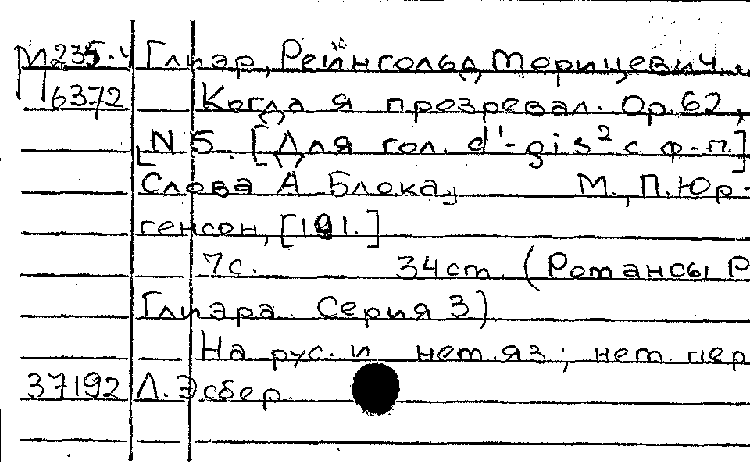 М235.4 Глиэр, Рейнгольд Морицевич.
6372 Когда я прозревал. Ор. 62,
N 5. [Для гол. d¹-gis² с ф-п.]
Слова А Блока, М., П. Юр-
генсон, [191.]
7с. 34cm (Романсы Р
Глиэра. Серия 3)
На рус. и нем яз; нем. пер
37192 Л. Эсбер